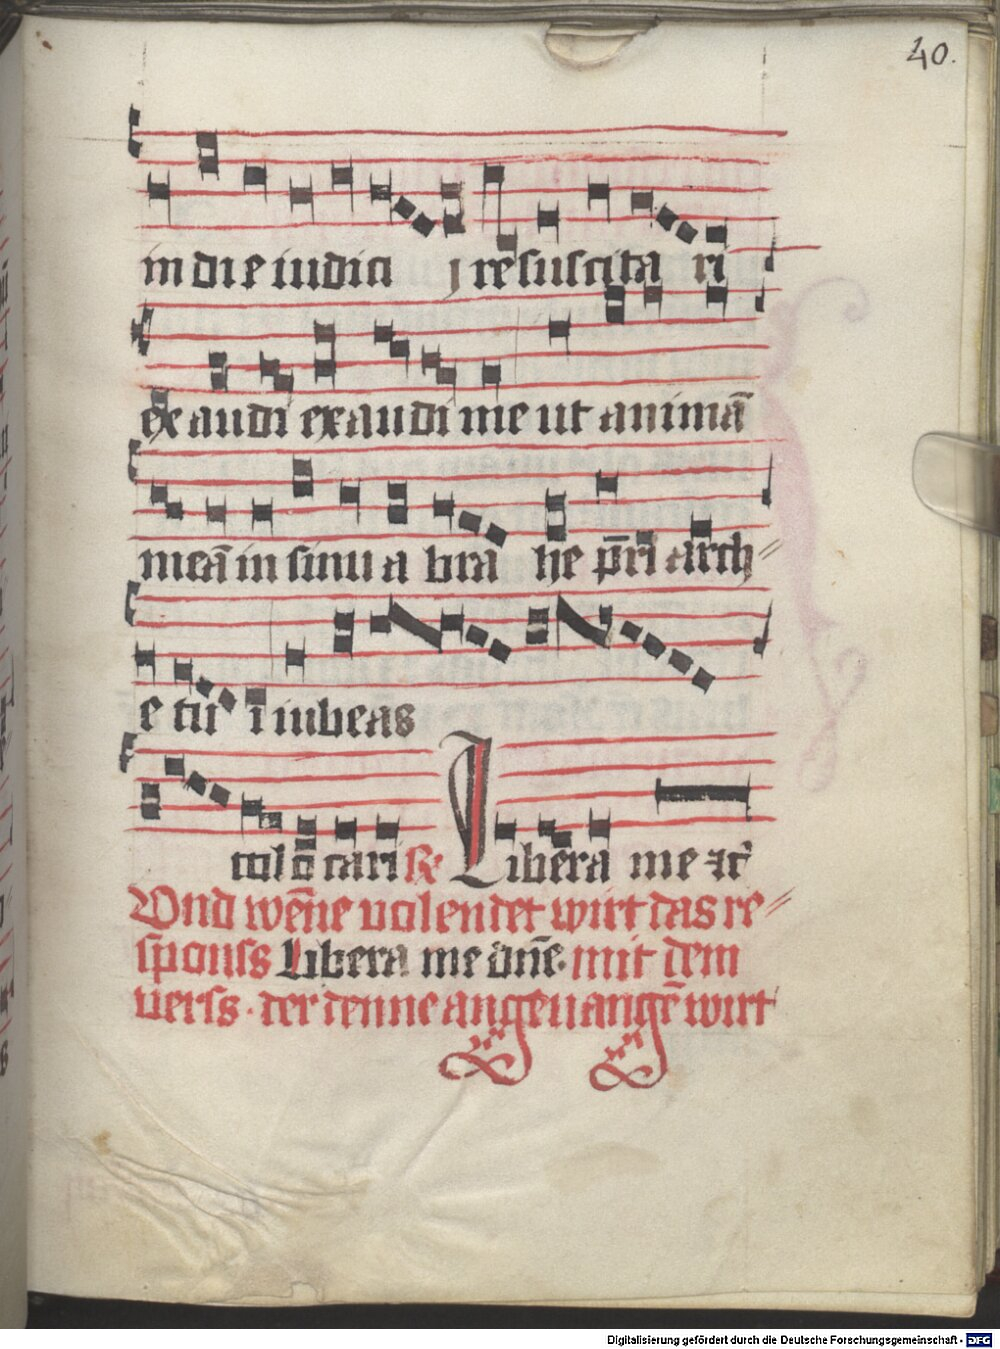 40.
in die iudici j resuscita ri
exaudi exaudi me ut animā
meā in sinu a bra he p̄ri arch⸗
e tu i iubeas
col o cari R℣ Libera me ⁊c̄
Vnd wēne volendet wirt das re⸗
sponss Libera me dn̄e· mit dem
verss · der denne angeuangē wirt
Digitalisierung gefördert durch die Deutsche Forschungsgemeinschaft - DFG